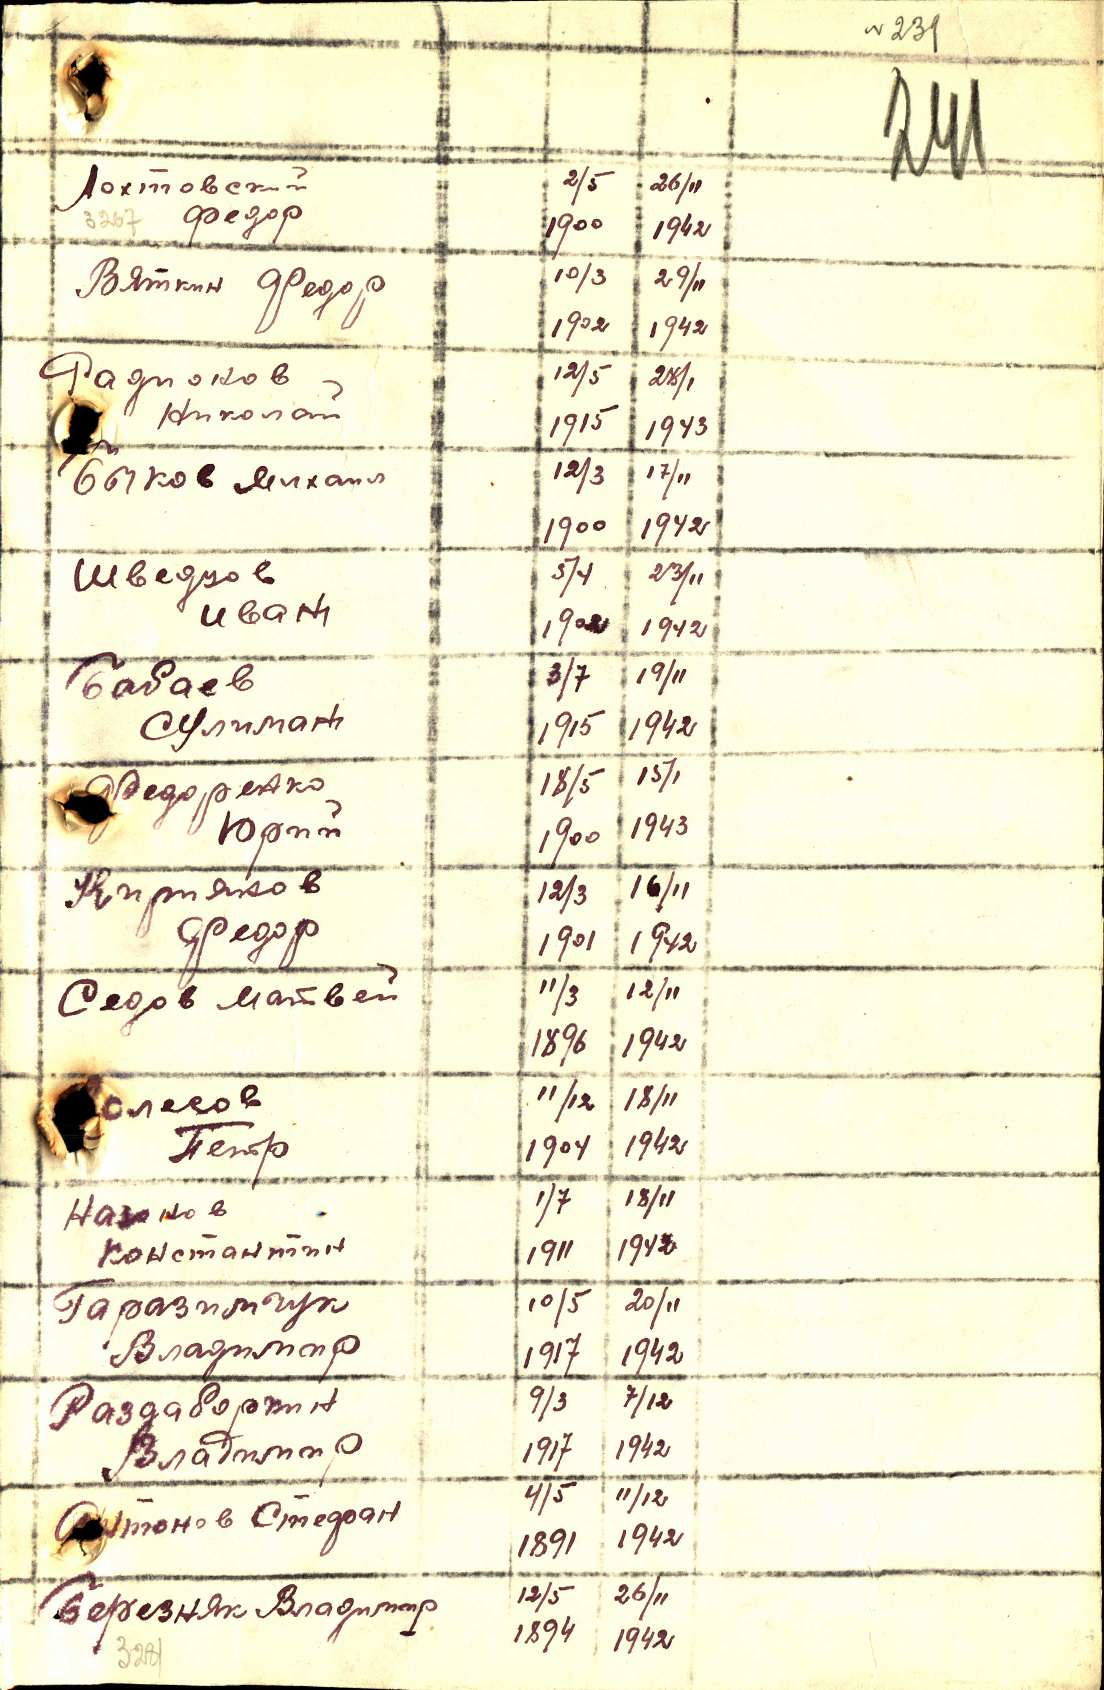 N 231
241
Лохтовский 2/5 26/11
3267 Федор 1900 1942
Вяткин Федор 10/3 29/11
1902 1942
Радионов 12/5 28/1
Николай 1915 1943
Быков Михаил 12/3 17/11
1900 1942
Шведцов 5/4 23/11
Иван 1902 1942
Бабаев 3/7 19/11
Сулиман 1915 1942
Федоренко 18/5 15/1
Юрий 1900 1943
Кирияков 12/3 16/11
Федор 1901 1942
Седов Матвей 11/3 12/11
1896 1942
олесов 11/12 18/11
Петр 1904 1942
Назонов 1/7 18/11
Константин 1911 1942
Гаразимчук 10/5 20/11
Владимир 1917 1942
Раздаборкин 9/3 7/12
Владимир 1917 1942
Антонов Стефан 4/5 11/12
1891 1942
Березняк Владимир 12/5 26/11
3281 1894 1942